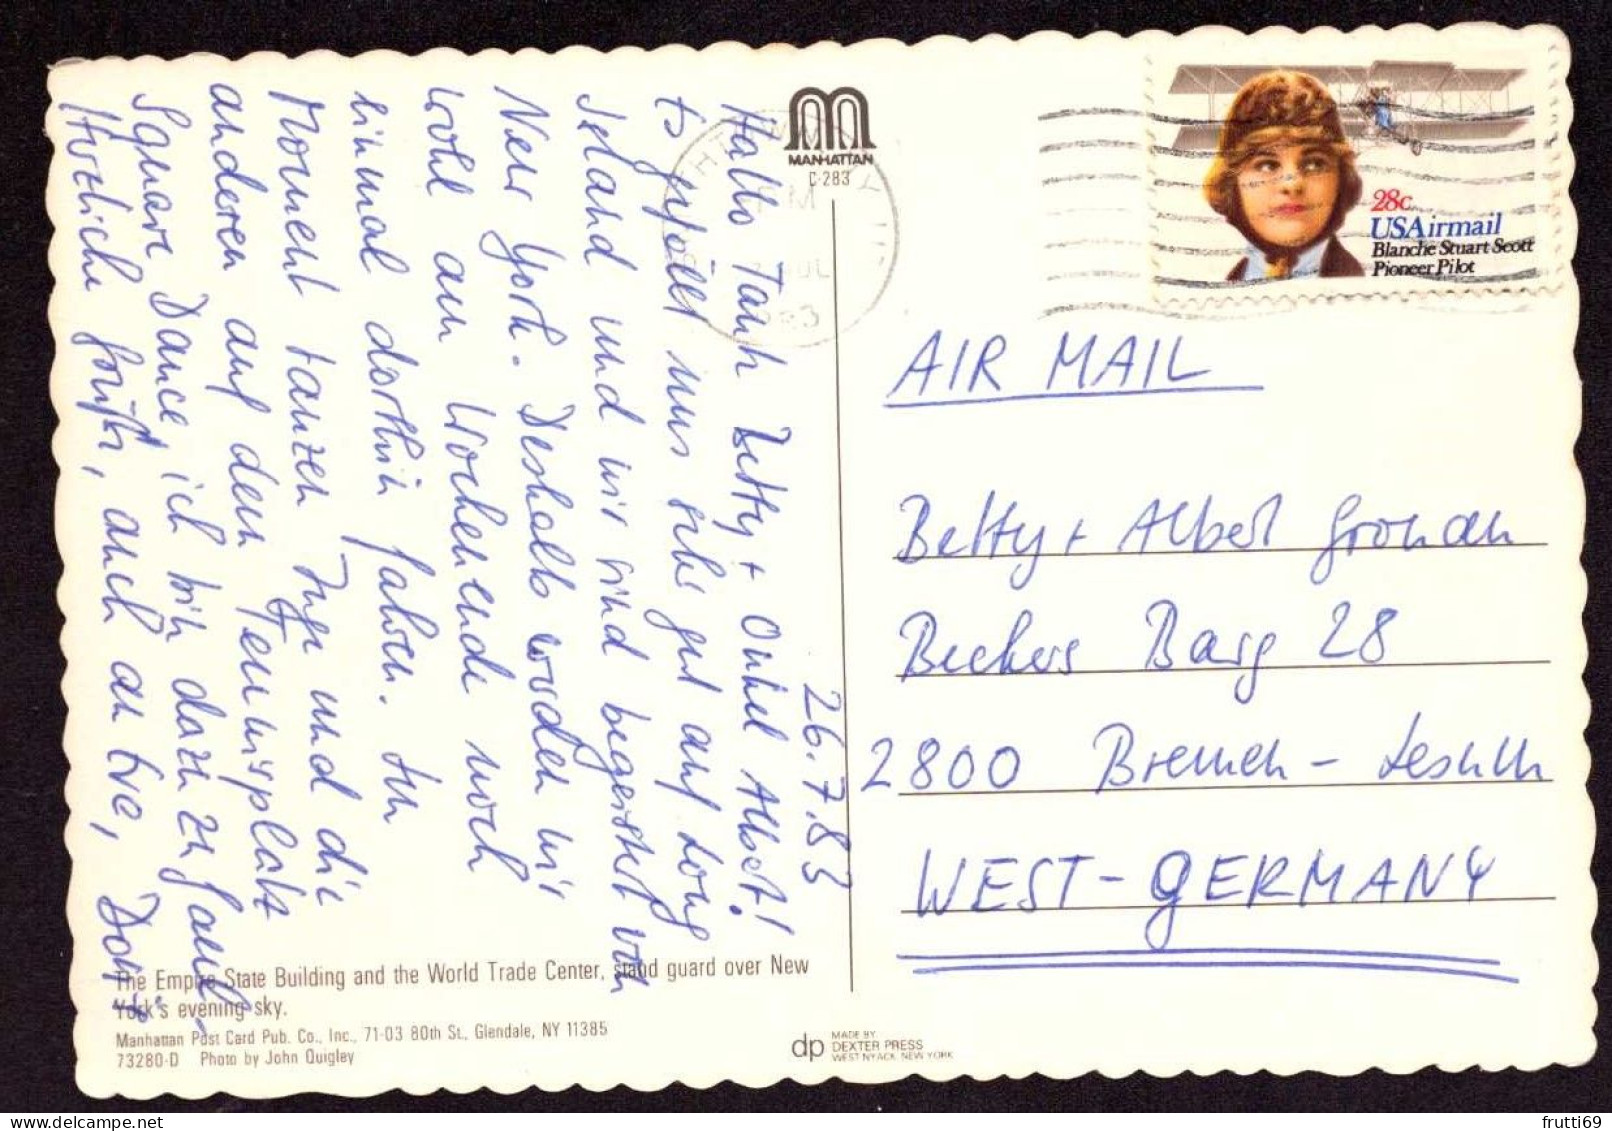 26.7.83
Hallo Tante Betty + Onkel Albert!
Es gefällt uns sehr gut auf Long
Island und wir sind begeistert von
New York. Deshalb werden wir
wohl am Wochenende noch
einmal dorthin fahren. Im
Moment tanzen Inge und die
anderen auf dem Tennisplatz
Square Dance, ich bin dazu zu faul.
Herzliche Grüße, auch an Eve,
MANHATTAN
C-283
28c
USAirmail
Blanche Stuart Scott
Pioneer Pilot
AIR MAIL
Betty + Albert Gronau
Beckers Barg 28
2800 Bremen - Lesum
WEST-GERMANY
The Empire State Building and the World Trade Center, stand guard over New
York's evening sky.
Manhattan Post Card Pub. Co., Inc., 71-03 80th St., Glendale, NY 11385
73280-D Photo by John Quigley
dp MADE BY
DEXTER PRESS
WEST NYACK, NEW YORK
frutti69